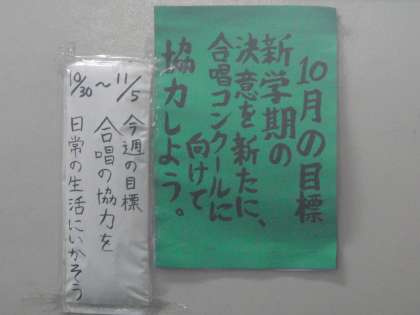 10月の目標
新学期の
決意を新たに、
合唱コンクールに
向けて
協力しよう。
10/30 〜 11/5
今週の目標
合唱の協力を
日常の生活にいかそう